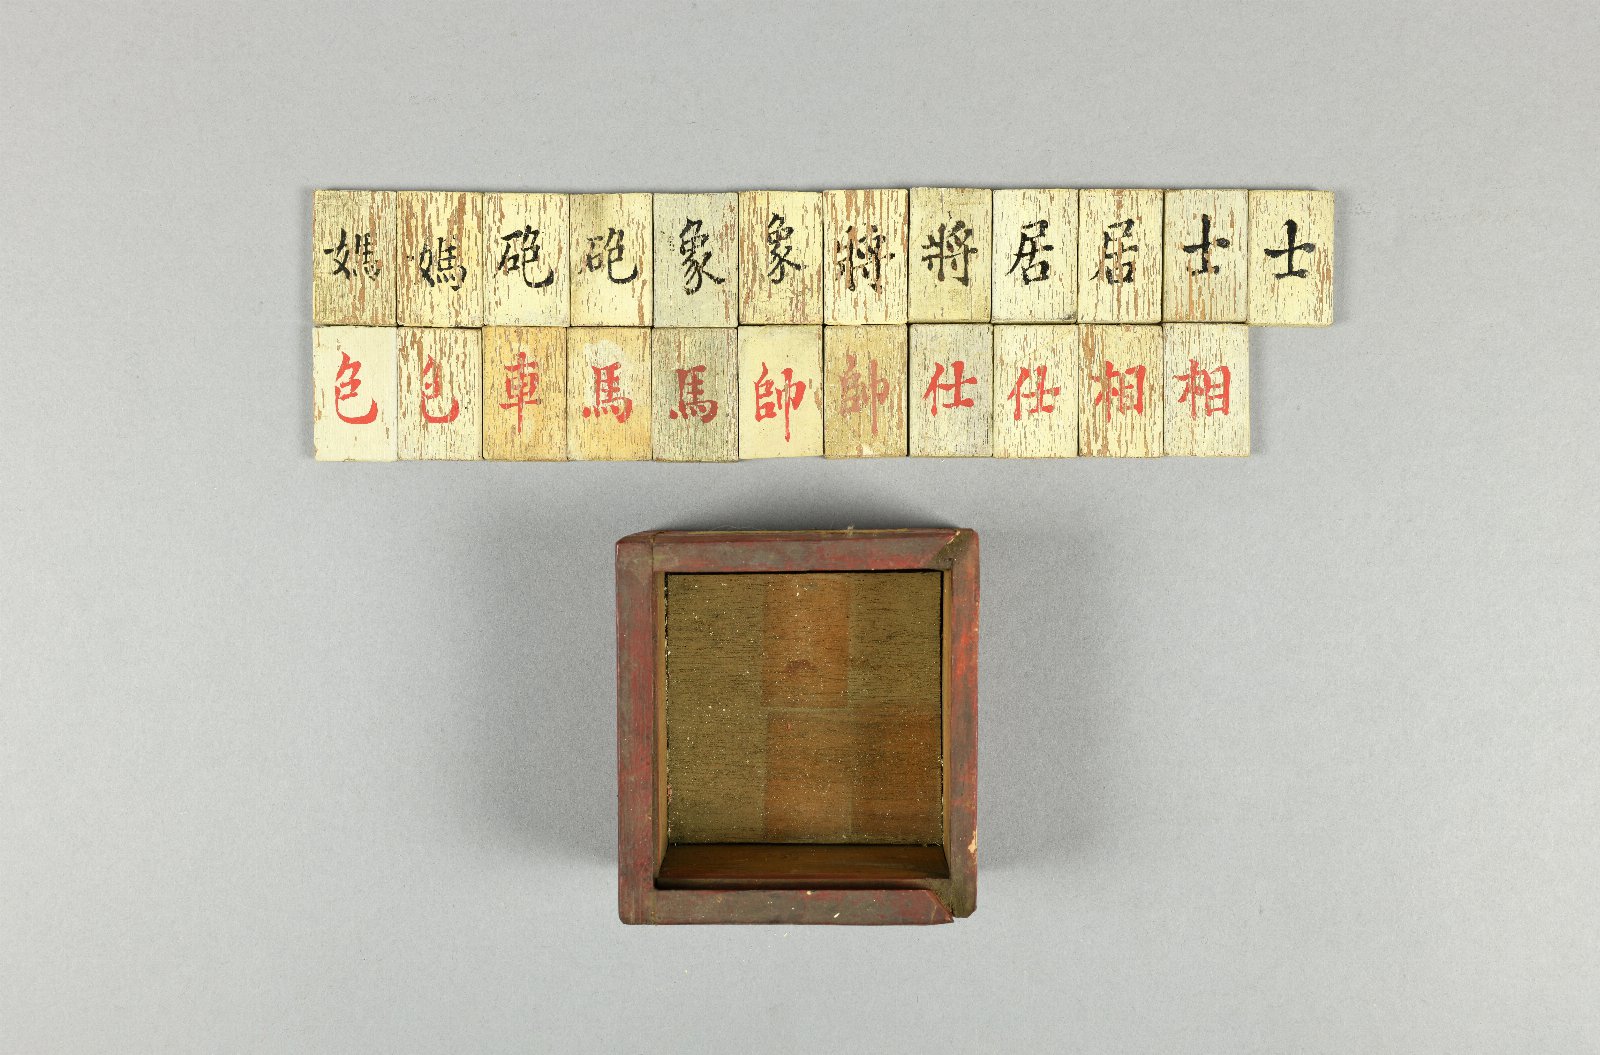 媽 媽 砲 砲 象 象 將 將 居 居 士 士
包 包 車 馬 馬 帥 帥 仕 仕 相 相